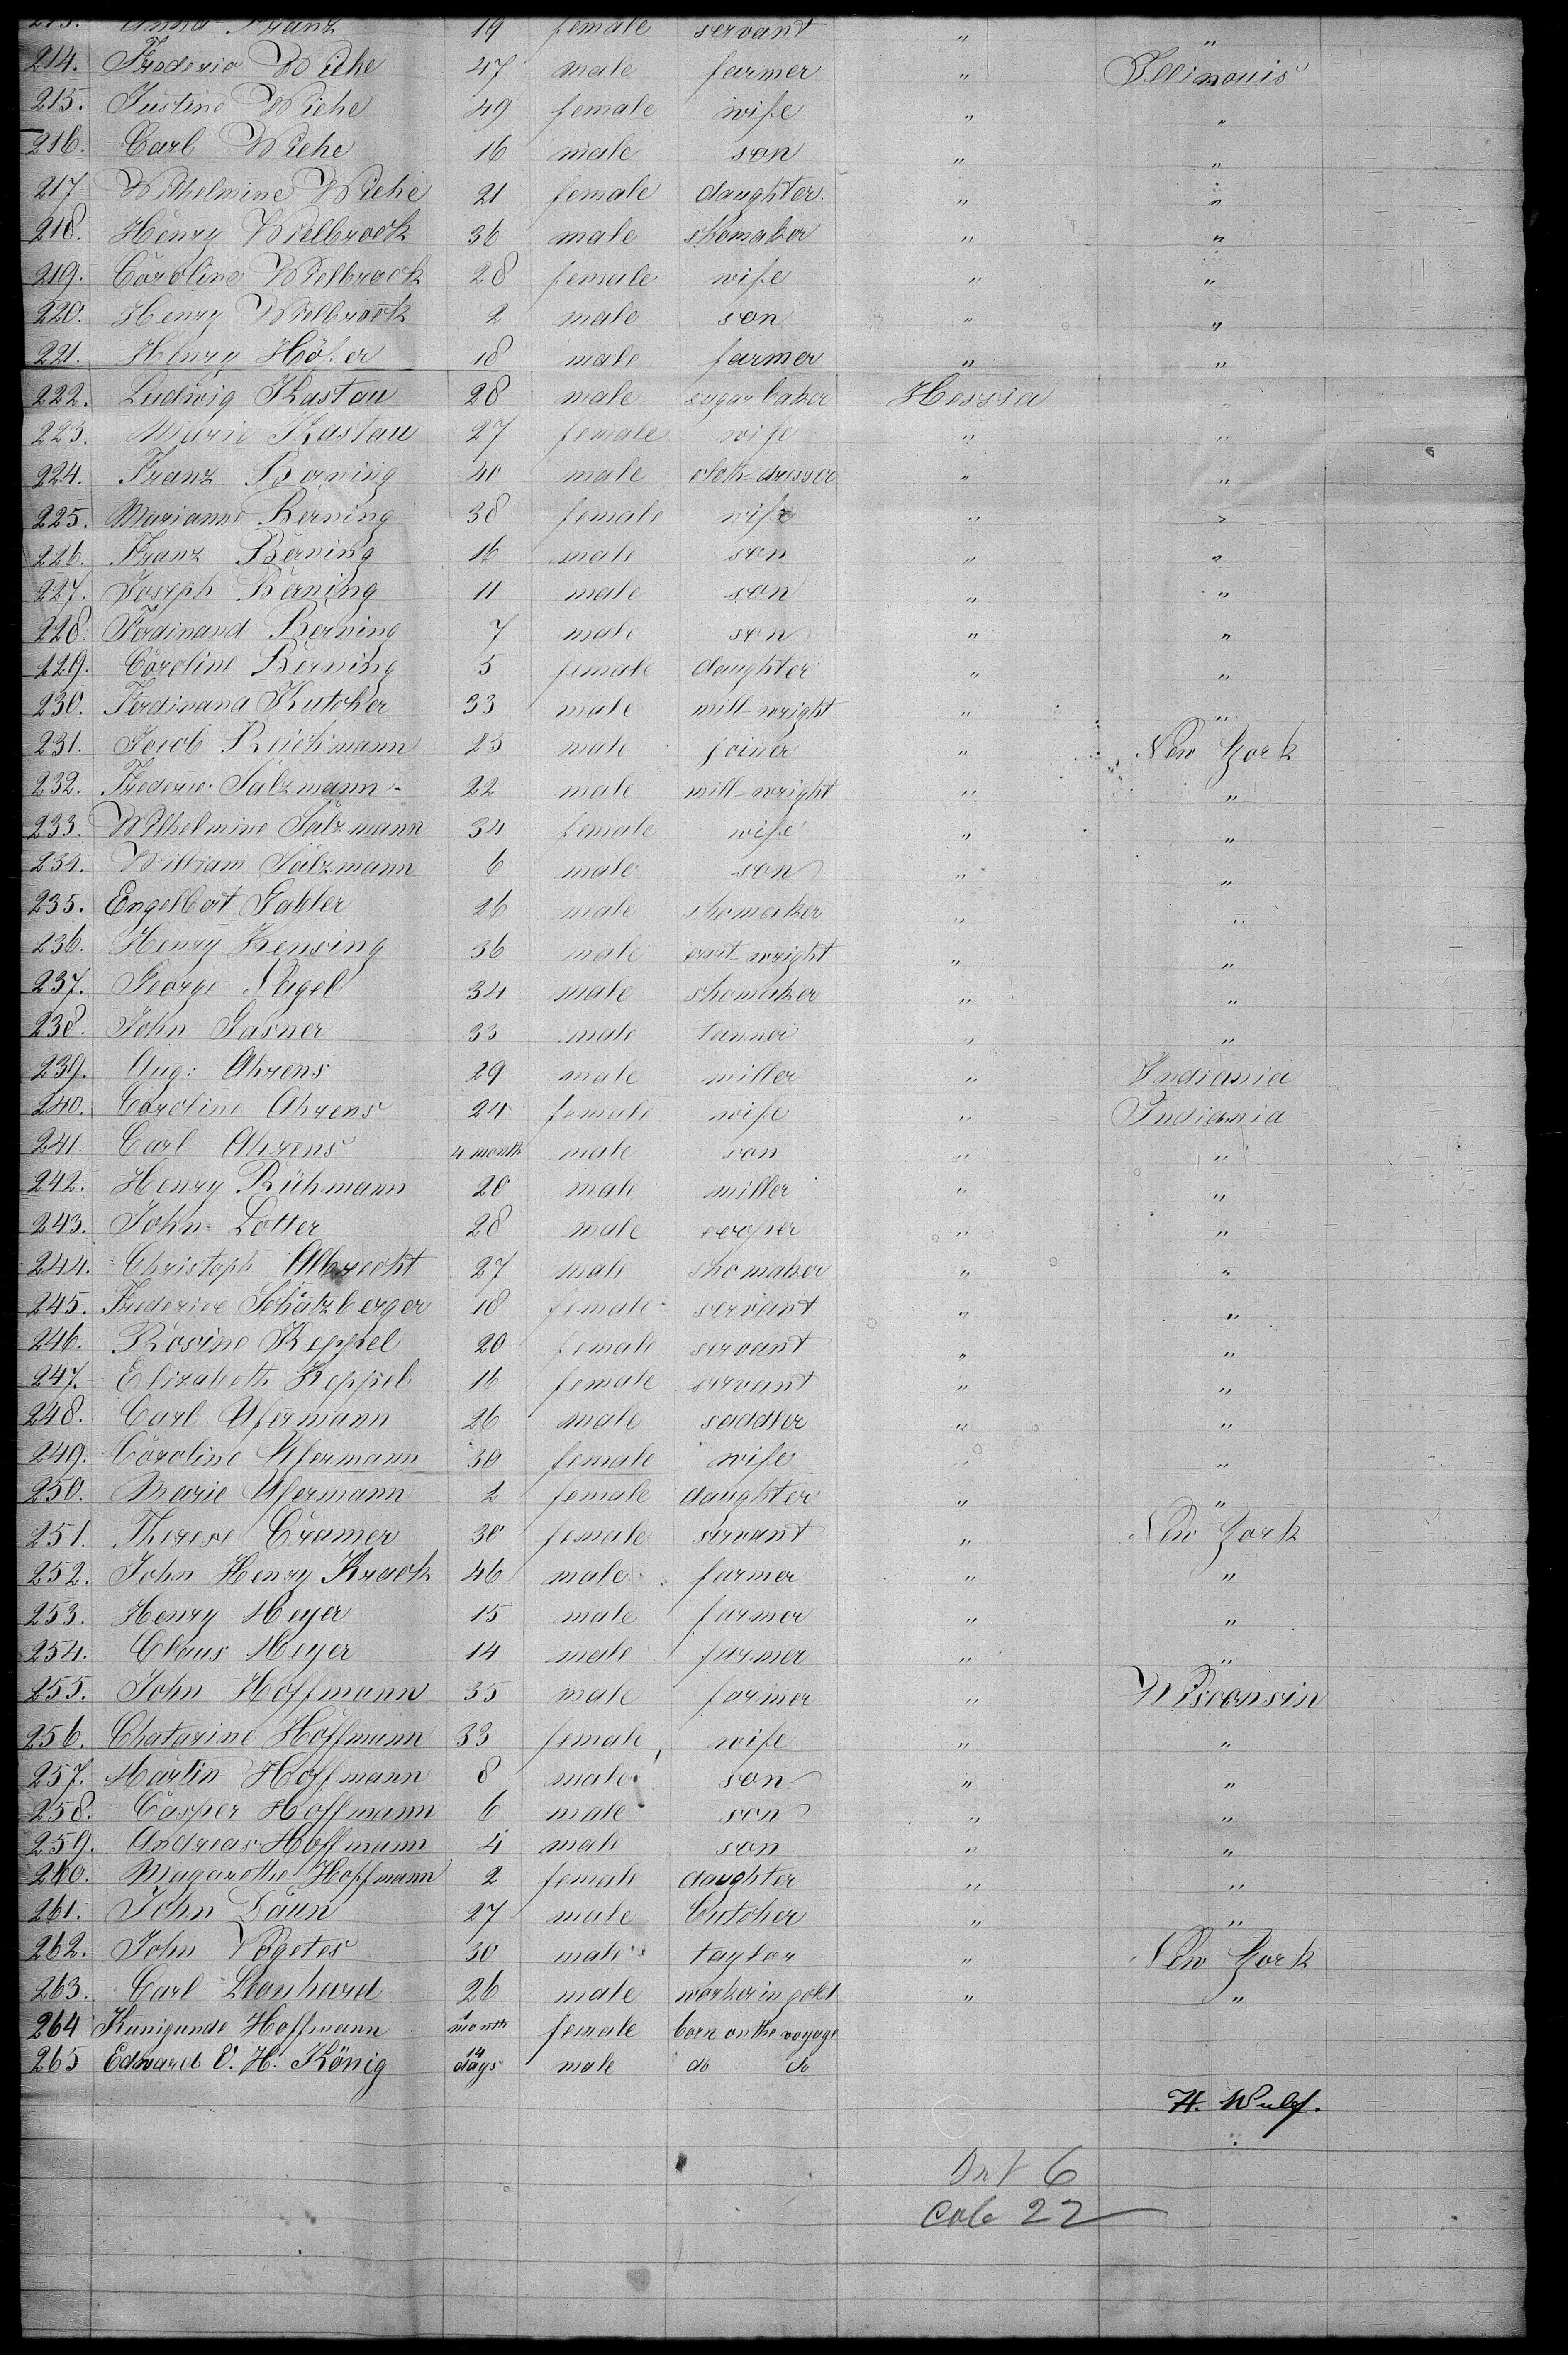 213. Anna Franz 19 female servant " "
214. Frederic Wiehe 47 male farmer " Illinouis
215. Justine Wiehe 49 female wife " "
216. Carl Wiehe 16 male son " "
217 Wilhelmine Wiehe 21 female daughter " "
218. Henry Wielbrock 36 male shomaker " "
219. Caroline Wielbrock 28 female wife " "
220. Henry Wielbrock 2 male son " "
221. Henry 18 male farmer " "
222. Ludwig Kastau 28 male sugarbaker Hessia "
223. Marie Kastau 27 female wife " "
224. Franz Berning 40 male cloth-dresser " "
225. Marianne Berning 38 female wife " "
226. Franz Berning 16 male son " "
227. Joseph Berning 11 male son " "
228. Ferdinand Berning 7 male son " "
229. Caroline Berning 5 female daughter " "
230. Ferdinand Kutcher 33 male mill-wright " "
231. Jacob Reichmann 25 male joiner " New York
232. Frederic Salzmann 22 male mill-wright " "
233. Wilhelmine Salzmann 34 female wife " "
234. William Salzmann 6 male son " "
235. Engelbert Gabler 26 male shomaker " "
236. Henry Kensing 36 male cart-wright " "
237. George Nagel 34 male shomaker " "
238. John Gasner 33 male tanner " "
239. Aug: Ahrens 29 male miller " Indiania
240. Caroline Ahrens 24 female wife " Indiania
241. Carl Ahrens 4 month male son " "
242. Henry Rühmann 20 male miller " "
243. John Lotter 28 male cooper " "
244. Christoph Albrecht 27 male shomaker " "
245. Friederice Schatzberger 18 female servant " "
246. Rosine Keppel 20 female servant " "
247. Elizabeth Keppel 16 female servant " "
248. Carl Ufermann 26 male saddler " "
249. Caroline Ufermann 30 female wife " "
250. Marie Ufermann 2 female daughter " "
251. Therese Cramer 30 female servant " New York
252. John Henry Krack 46 male farmer " "
253. Henry Meyer 15 male farmer " "
254. Claus Meyer 14 male farmer " "
255. John Hoffmann 35 male farmer " Wisconsin
256. Chatarine Hoffmann 33 female wife " "
257. Martin Hoffmann 8 male son " "
258. Casper Hoffmann 6 male son " "
259. Andreas Hoffmann 4 male son " "
260. Magarethe Hoffmann 2 female daughter " "
261. John Daun 27 male butcher " "
262. John Vogetes 30 male taylor " New York
263. Carl Leonhard 26 male worker in gold " "
264 Kunigunde Hoffmann 1 month female born on the voyage
265 Edward C. H. König 14 days male do do
H. Wulf.
Inf 6
22